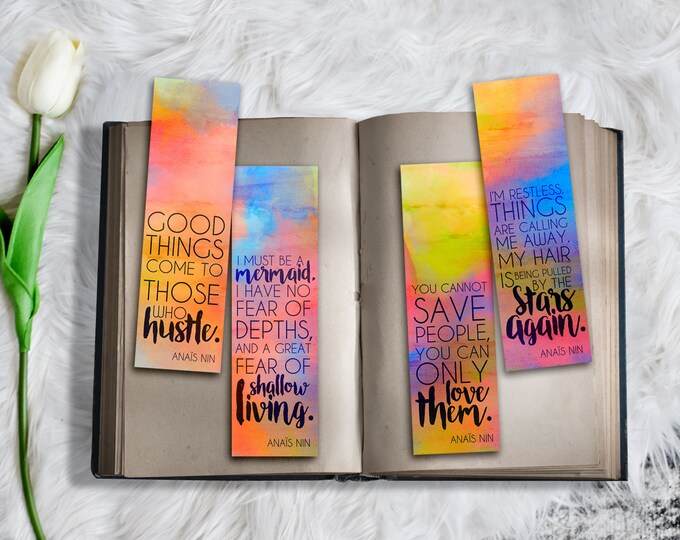 GOOD
THINGS
COME TO
THOSE
WHO
hustle.
ANAÏS NIN
I MUST BE A
mermaid.
I HAVE NO
FEAR OF
DEPTHS,
AND A GREAT
FEAR OF
shallow
living.
ANAÏS NIN
YOU CANNOT
SAVE
PEOPLE,
YOU CAN
ONLY
love
them.
ANAÏS NIN
I'M RESTLESS.
THINGS
ARE CALLING
ME AWAY.
MY HAIR
IS BEING PULLED
BY THE
stars
again.
ANAÏS NIN